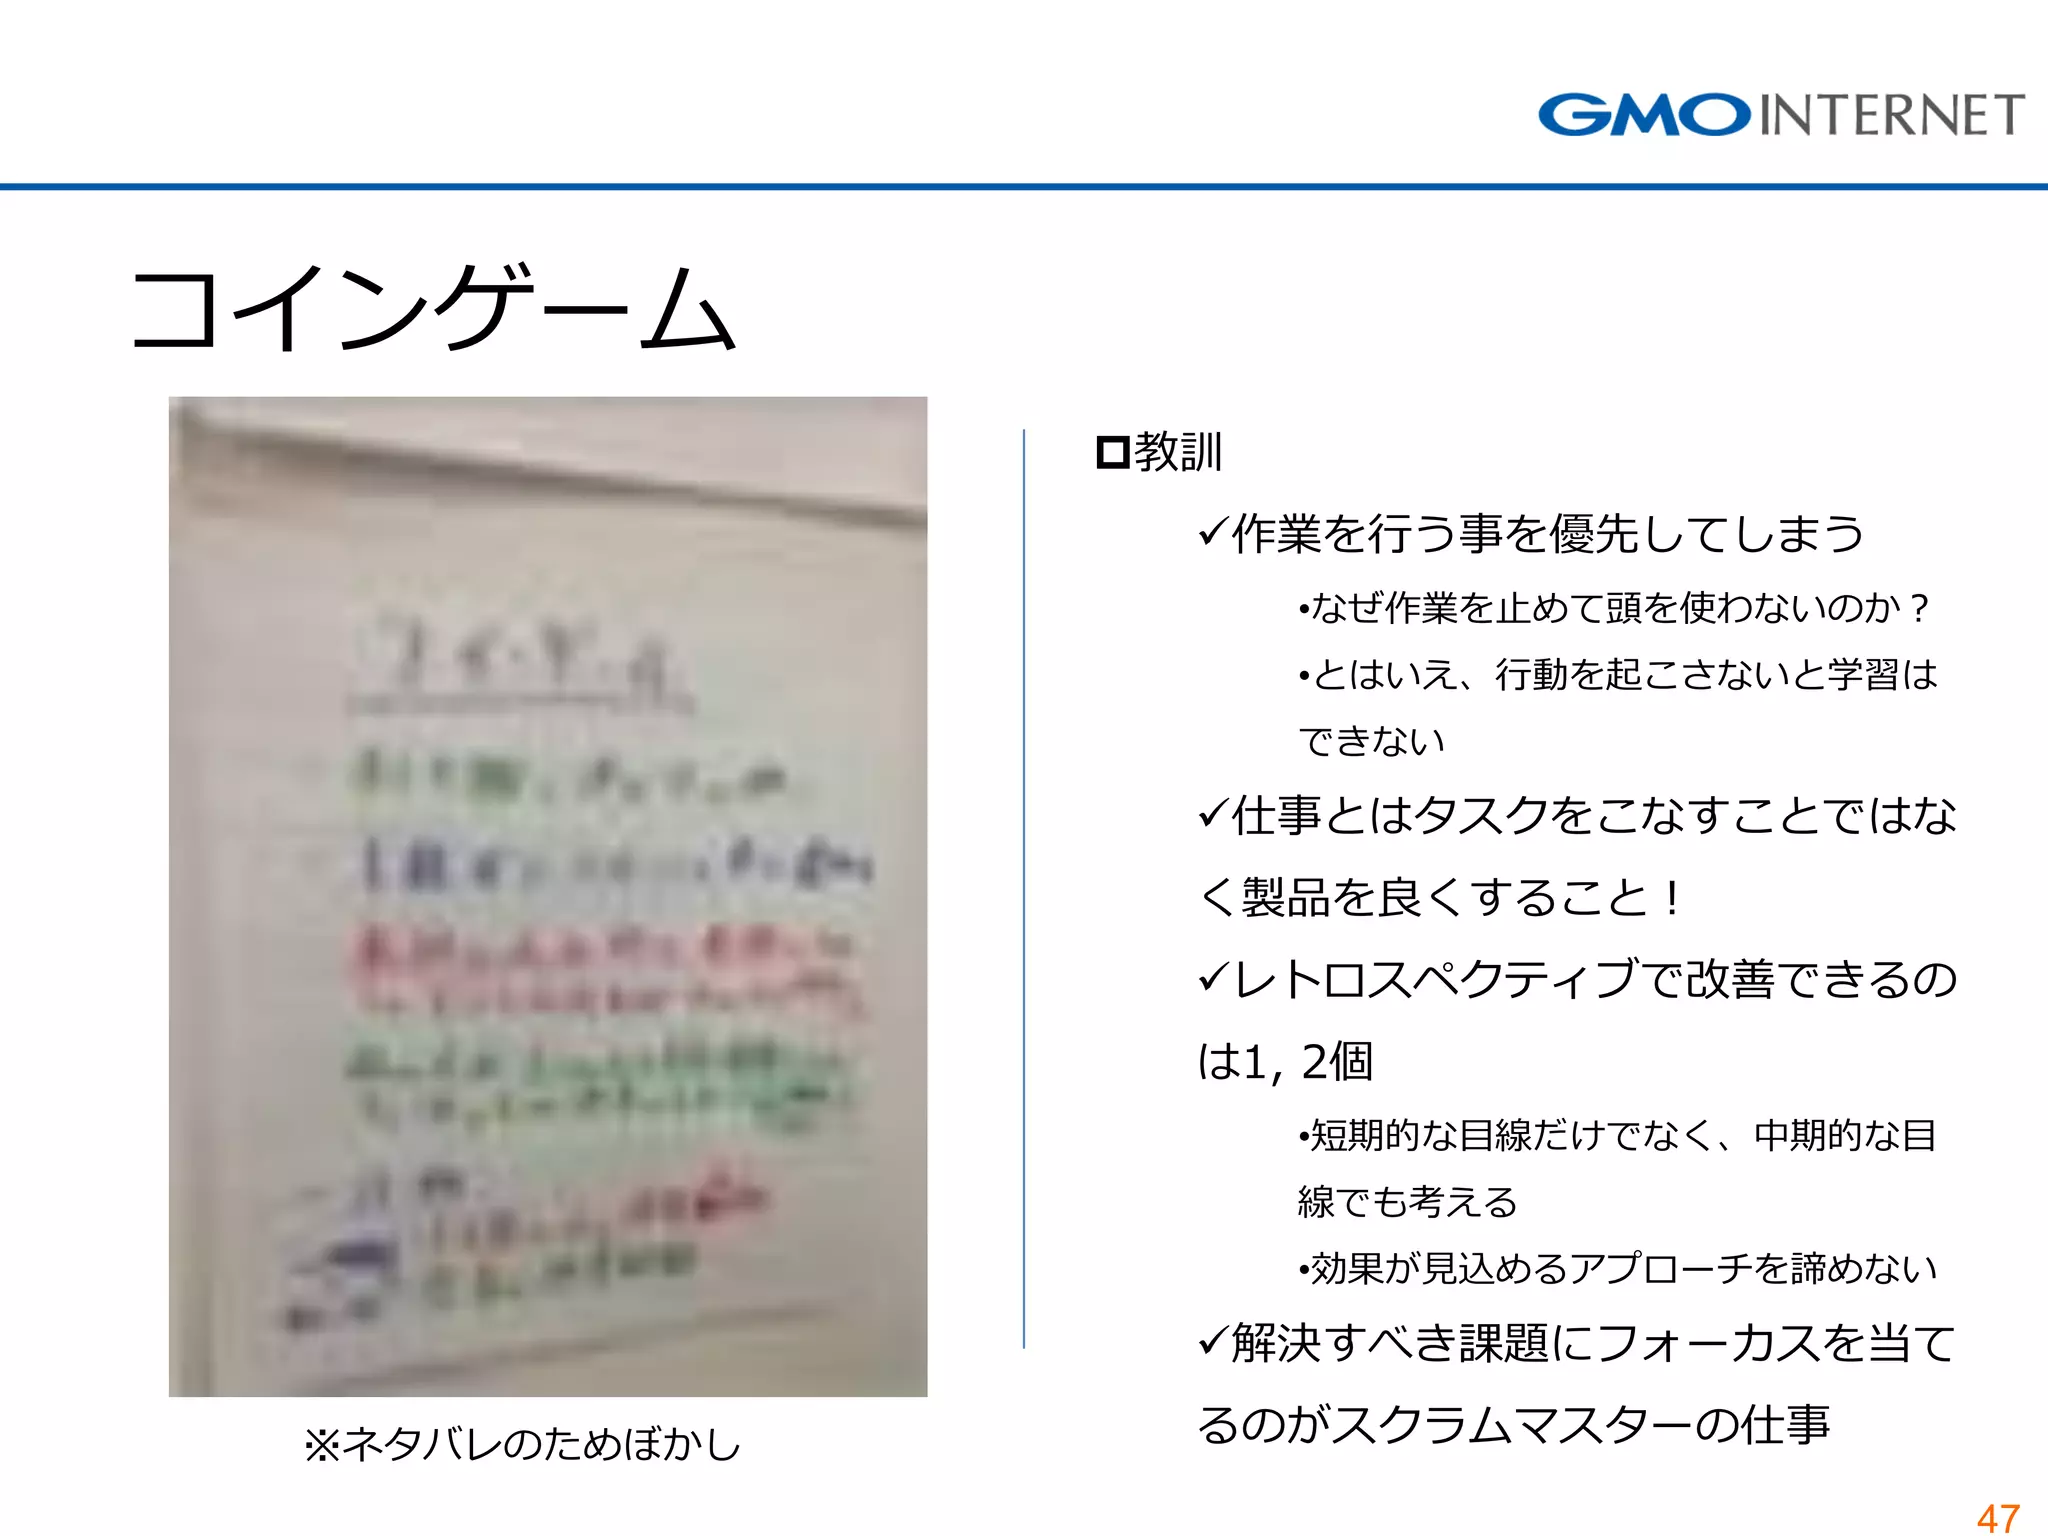 GMO INTERNET
コインゲーム
教訓
✓作業を行う事を優先してしまう
•なぜ作業を止めて頭を使わないのか？
•とはいえ、行動を起こさないと学習は
できない
✓仕事とはタスクをこなすことではな
く製品を良くすること！
✓レトロスペクティブで改善できるの
は1, 2個
•短期的な目線だけでなく、中期的な目
線でも考える
•効果が見込めるアプローチを諦めない
✓解決すべき課題にフォーカスを当て
るのがスクラムマスターの仕事
※ネタバレのためぼかし
47